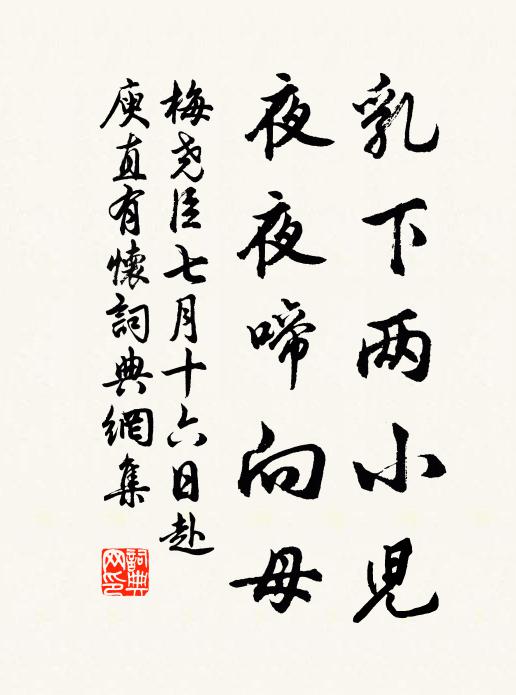 乳下两小児
夜夜啼向母
梅尧臣七月十六日赴
庾直有懷詞典網集
詞典網印